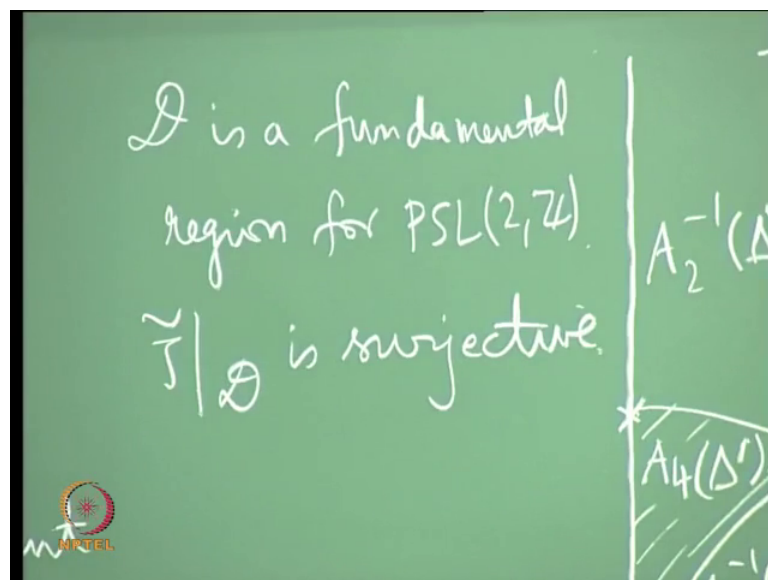 𝒟 is a fundamental
region for PSL(2,ℤ).
J̃|_𝒟 is surjective.
A₂⁻¹(Δ
A₄(Δ')
-1
NPTEL